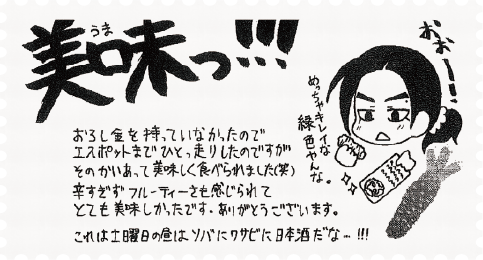 美味っ!!!
うま
おおーー!!
めっちゃキレイな
緑色やんな。
おろし金を持っていなかったので
エスポットまでひとっ走りしたのですが
そのかいあって美味しく食べられました(笑)
辛すぎずフルーティーさも感じられて
とても美味しかったです。ありがとうございます。
これは土曜日の昼はソバにワサビに日本酒だな…!!!